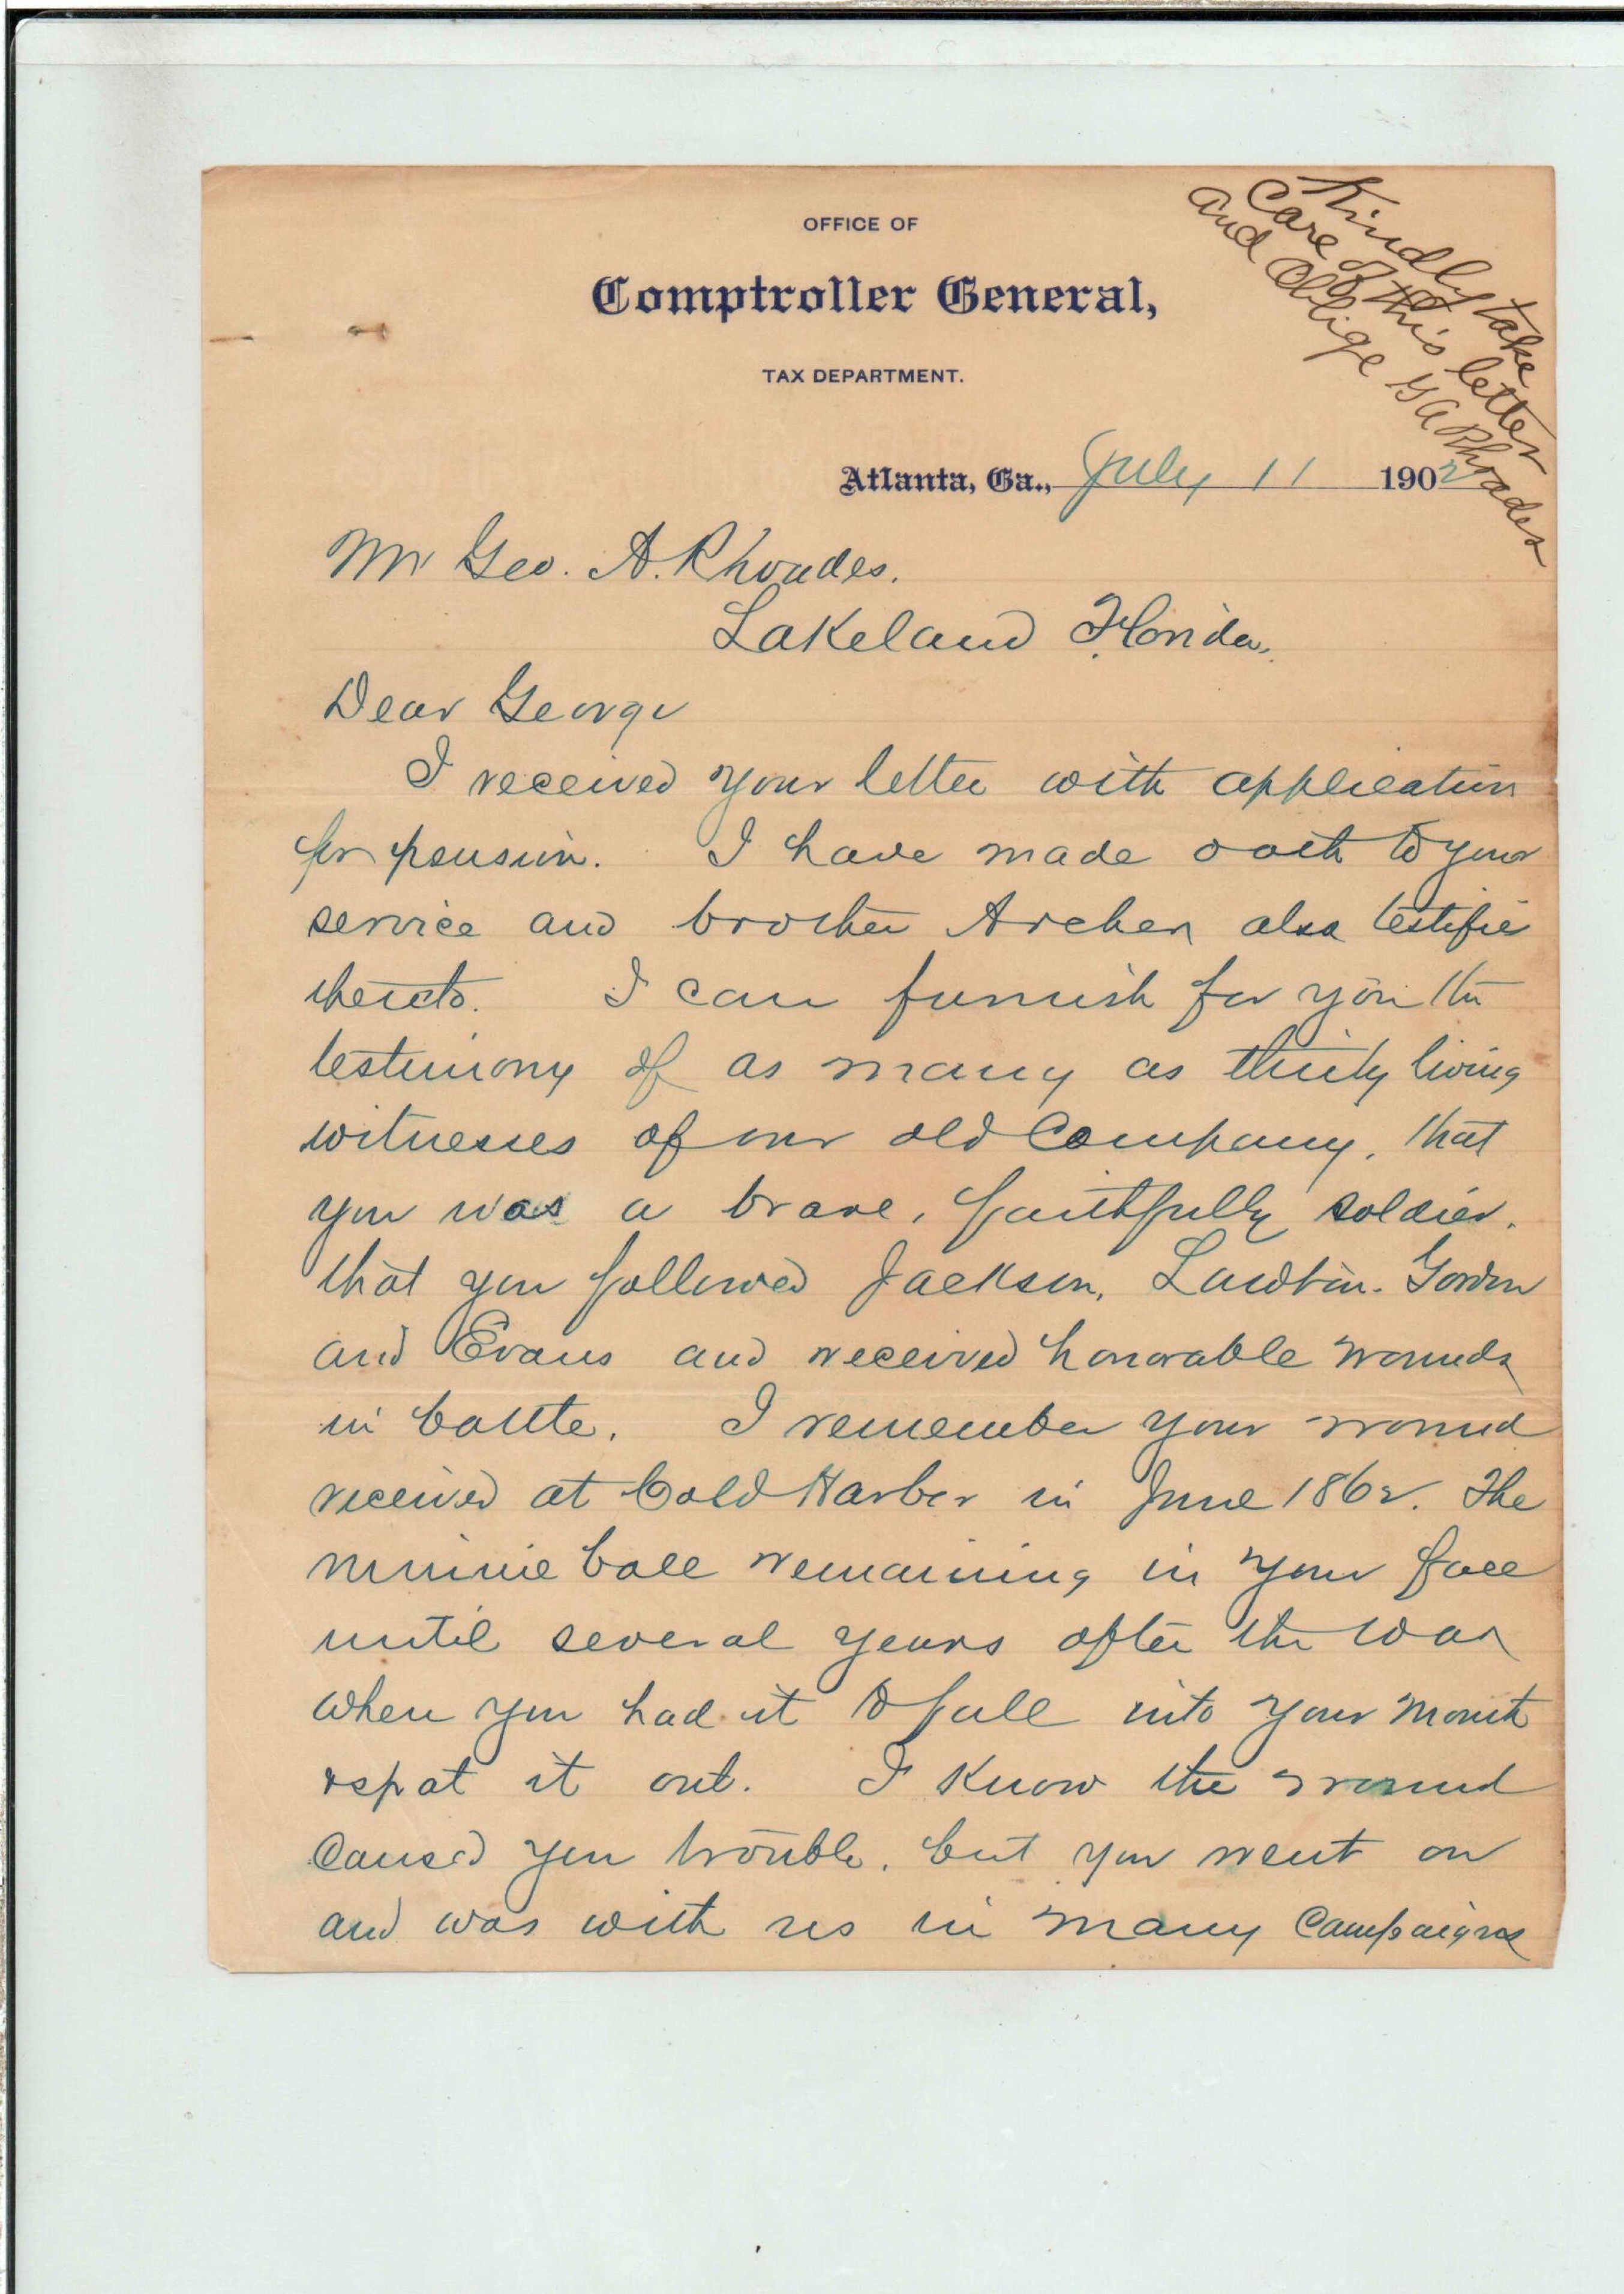 OFFICE OF
Comptroller General,
TAX DEPARTMENT.
Kindly take
Care of this letter
and Oblige G A Rhoades
Atlanta, Ga., July 11 1902
Mr Geo. A. Rhoades.
Lakeland Florida.
Dear George
I received your letter with application
for pension. I have made oath to your
service and brother Archer also testifies
thereto. I can furnish for you the
testimony of as many as thirty living
witnesses of our old Company, that
you was a brave, faithfully soldier.
that you followed Jackson, Lawton. Gordon
and Evans and received honorable wounds
in battle. I remember your wound
received at Cold Harbor in June 1862. The
minnie ball remaining in your face
until several years after the war
when you had it to fall into your mouth
& spat it out. I know the wound
caused you trouble, but you went on
and was with us in many Campaigns